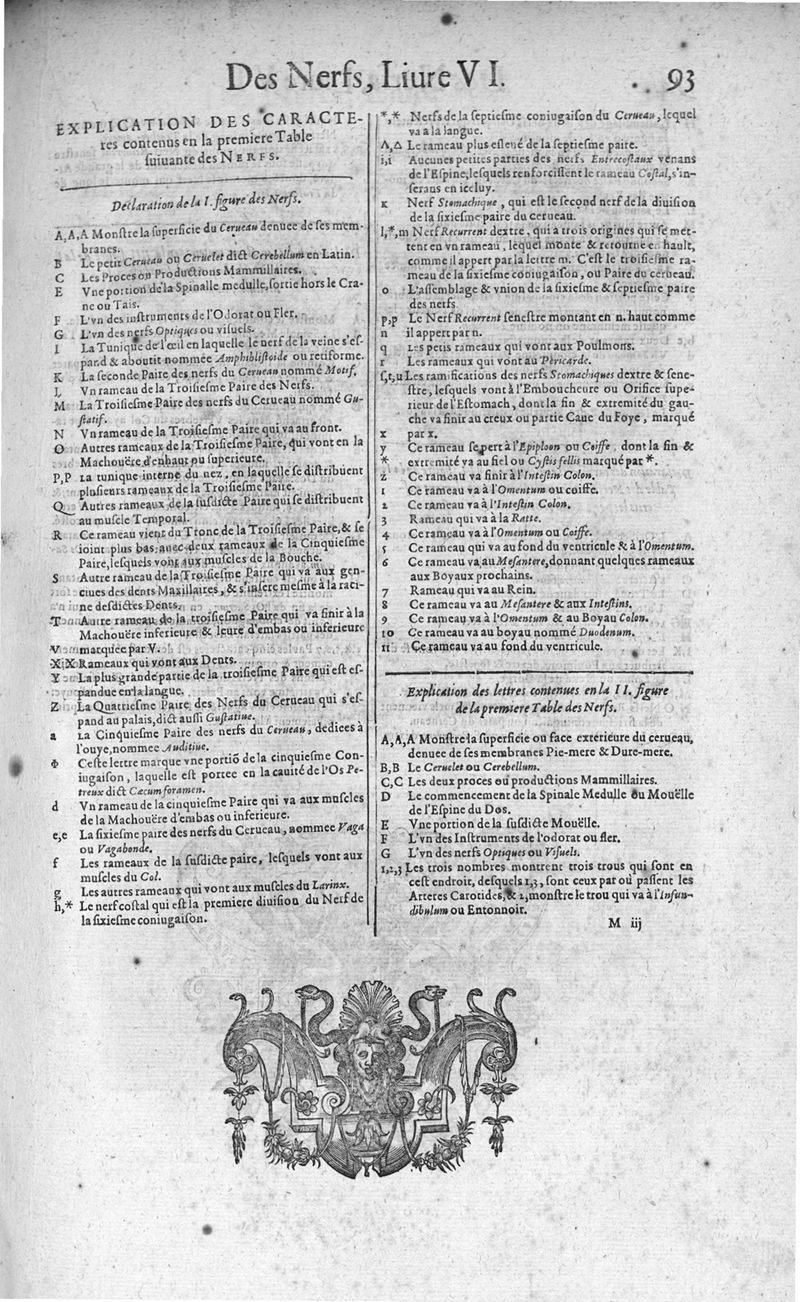 Des Nerfs, Liure VI. 93
EXPLICATION DES CARACTE-
res contenus en la premiere Table
ſuiuante des NERFS.
Declaration de la I. figure des Nerfs.
A, A, A Monſtre la ſuperficie du Cerueau denuee de ſes mem-
branes.
B Le petit Cerueau ou Ceruelet dict Cerebellum en Latin.
C Les Proces ou Productions Mammillaires.
E Vne portion de la Spinalle medulle, ſortie hors le Cra-
ne ou Tais.
F L'vn des inſtruments de l'Odorat ou Fler.
G L'vn des nerfs Optiques ou viſuels.
I La Tunique de l'œil en laquelle le nerf de la veine s'eſ-
pand & aboutit nommée Amphibliſtoide ou retiforme.
K La ſeconde Paire des nerfs du Cerueau nommé Motif.
L Vn rameau de la Troiſieſme Paire des Nerfs.
M La Troiſieſme Paire des nerfs du Cerueau nommé Gu-
ſtatif.
N Vn rameau de la Troiſieſme Paire qui va au front.
O Autres rameaux de la Troiſieſme Paire, qui vont en la
Machouëre d'enhaut ou ſuperieure.
P, P La tunique interne du nez, en laquelle ſe diſtribuent
pluſieurs rameaux de la Troiſieſme Paire.
Q Autres rameaux de la ſuſdicte Paire qui ſe diſtribuent
au muſcle Temporal.
R Ce rameau vient du Tronc de la Troiſieſme Paire, & ſe
ioint plus bas auec deux rameaux de la Cinquieſme
Paire, leſquels vont aux muſcles de la Bouche.
S Autre rameau de la Troiſieſme Paire qui va aux gen-
ciues des dents Maxillaires, & s'inſere meſme à la raci-
ne deſdictes Dents.
T Autre rameau de la troiſieſme Paire qui va finir à la
Machouëre inferieure & leure d'embas ou inferieure
V marquée par V.
X X Rameaux qui vont aux Dents.
Y La plus grande partie de la troiſieſme Paire qui eſt eſ-
pandue en la langue.
Z La Quatrieſme Paire des Nerfs du Cerueau qui s'eſ-
pand au palais, dict auſſi Guſtatiue.
a La Cinquieſme Paire des nerfs du Cerueau, dediées à
l'ouye, nommee Auditiue.
Φ Ceſte lettre marque vne portiõ de la cinquieſme Con-
iugaiſon, laquelle eſt portee en la cauité de l'Os Pe-
treux dict Cæcum foramen.
d Vn rameau de la cinquieſme Paire qui va aux muſcles
de la Machouëre d'embas ou inferieure.
e, e La ſixieſme paire des nerfs du Cerueau, nommee Vaga
ou Vagabonde.
f Les rameaux de la ſuſdicte paire, leſquels vont aux
muſcles du Col.
g Les autres rameaux qui vont aux muſcles du Larinx.
h, * Le nerf coſtal qui eſt la premiere diuiſion du Nerf de
la ſixieſme coniugaiſon.
*, * Nerfs de la ſeptieſme coniugaiſon du Cerueau, lequel
va a la langue.
Λ, Δ Le rameau plus eſleué de la ſeptieſme paire.
i, i Aucunes petites parties des nerfs Entrecoſtaux venans
de l'Eſpine, leſquels renforciſſent le rameau Coſtal, s'in-
ſerans en iceluy.
K Nerf Stomachique, qui eſt le ſecond nerf de la diuiſion
de la ſixieſme paire du cerueau.
l, *, m Nerf Recurrent dextre, qui a trois origines qui ſe met-
tent en vn rameau, lequel monte & retourne e hault,
comme il appert par la lettre m. C'eſt le troiſieſme ra-
meau de la ſixieſme coniugaiſon, ou Paire du cerueau.
o L'aſſemblage & vnion de la ſixieſme & ſeptieſme paire
des nerfs
p, p Le Nerf Recurrent ſeneſtre montant en n. haut comme
n il appert par n.
q Les petis rameaux qui vont aux Poulmons.
r Les rameaux qui vont au Pericarde.
ſ, t, u Les ramifications des nerfs Stomachiques dextre & ſene-
ſtre, leſquels vont à l'Emboucheure ou Orifice ſupe-
rieur de l'Eſtomach, dont la fin & extremité du gau-
che va finir au creux ou partie Caue du Foye, marqué
x par x.
y Ce rameau ſe pert à l'Epiploon ou Coiffe, dont la fin &
* extremité va au fiel ou Cyſtis fellis marqué par *.
z Ce rameau va finir à l'Inteſtin Colon.
1 Ce rameau va à l'Omentum ou coiffe.
2 Ce rameau va à l'Inteſtin Colon.
3 Rameau qui va à la Ratte.
4 Ce rameau va à l'Omentum ou Coiffe.
5 Ce rameau qui va au fond du ventricule & à l'Omentum.
6 Ce rameau va au Meſantere, donnant quelques rameaux
aux Boyaux prochains.
7 Rameau qui va au Rein.
8 Ce rameau va au Meſantere & aux Inteſtins.
9 Ce rameau va à l'Omentum & au Boyau Colon.
10 Ce rameau va au boyau nommé Duodenum.
11 Ce rameau va au fond du ventricule.
Explication des lettres contenues en la II. figure
de la premiere Table des Nerfs.
A, A, A Monſtre la ſuperficie ou face exterieure du cerueau,
denuee de ſes membranes Pie-mere & Dure-mere.
B, B Le Ceruelet ou Cerebellum.
C, C Les deux proces ou productions Mammillaires.
D Le commencement de la Spinale Medulle ou Mouëlle
de l'Eſpine du Dos.
E Vne portion de la ſuſdicte Mouëlle.
F L'vn des Inſtruments de l'odorat ou fler.
G L'vn des nerfs Optiques ou Viſuels.
1, 2, 3 Les trois nombres montrent trois trous qui ſont en
ceſt endroit, deſquels 1, 3, ſont ceux par où paſſent les
Arteres Carotides, & 2, monſtre le trou qui va à l'Infun-
dibulum ou Entonnoir.
M iij